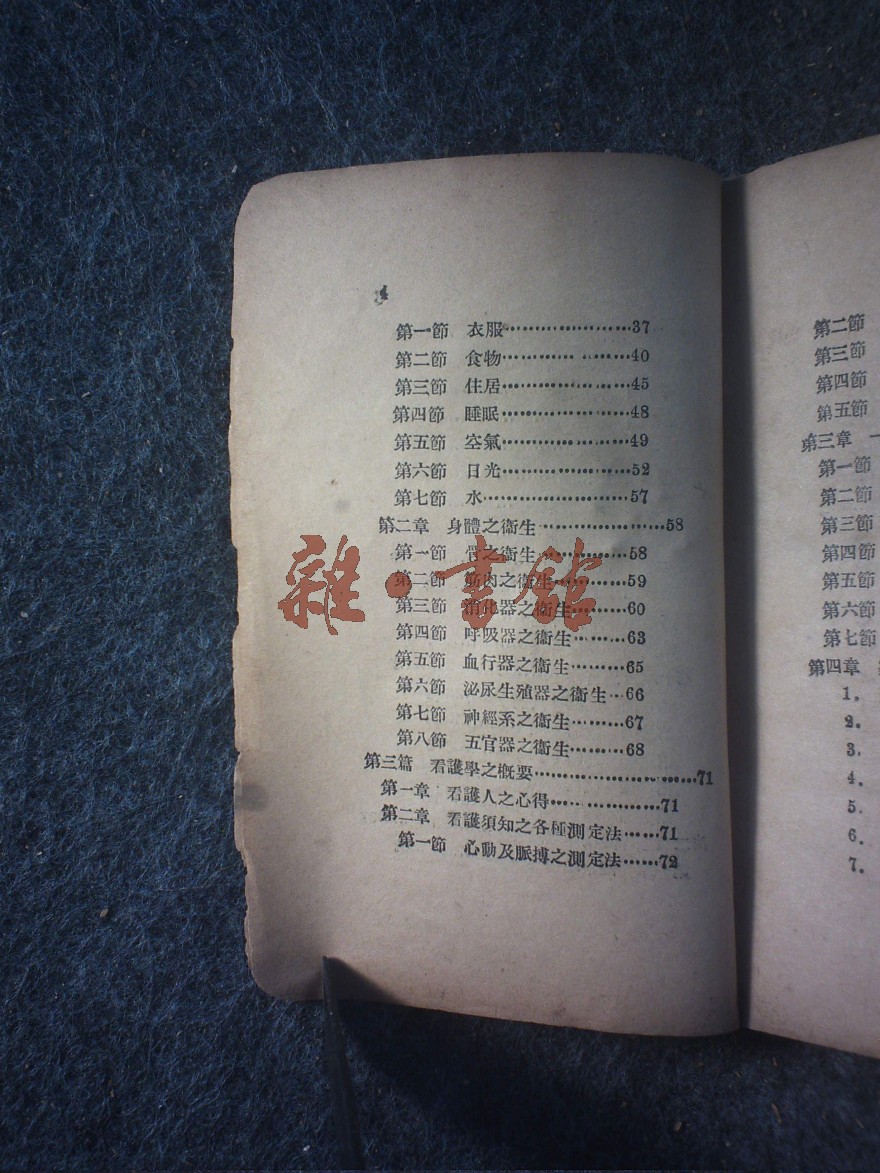 4
第一節 衣服…………………37
第二節 食物…………………40
第三節 住居…………………45
第四節 睡眠…………………48
第五節 空氣…………………49
第六節 日光…………………52
第七節 水……………………57
第二章 身體之衞生…………………58
第一節 骨之衞生……………58
第二節 筋肉之衞生…………59
第三節 消化器之衞生………60
第四節 呼吸器之衞生………63
第五節 血行器之衞生………65
第六節 泌尿生殖器之衞生…66
第七節 神經系之衞生………67
第八節 五官器之衞生………68
第三篇 看護學之概要………………………71
第一章 看護人之心得………………71
第二章 看護須知之各種測定法……71
第一節 心動及脈搏之測定法……72
雜·書館
第二節
第三節
第四節
第五節
第三章 一
第一節
第二節
第三節
第四節
第五節
第六節
第七節
第四章
1.
2.
3.
4.
5.
6.
7.